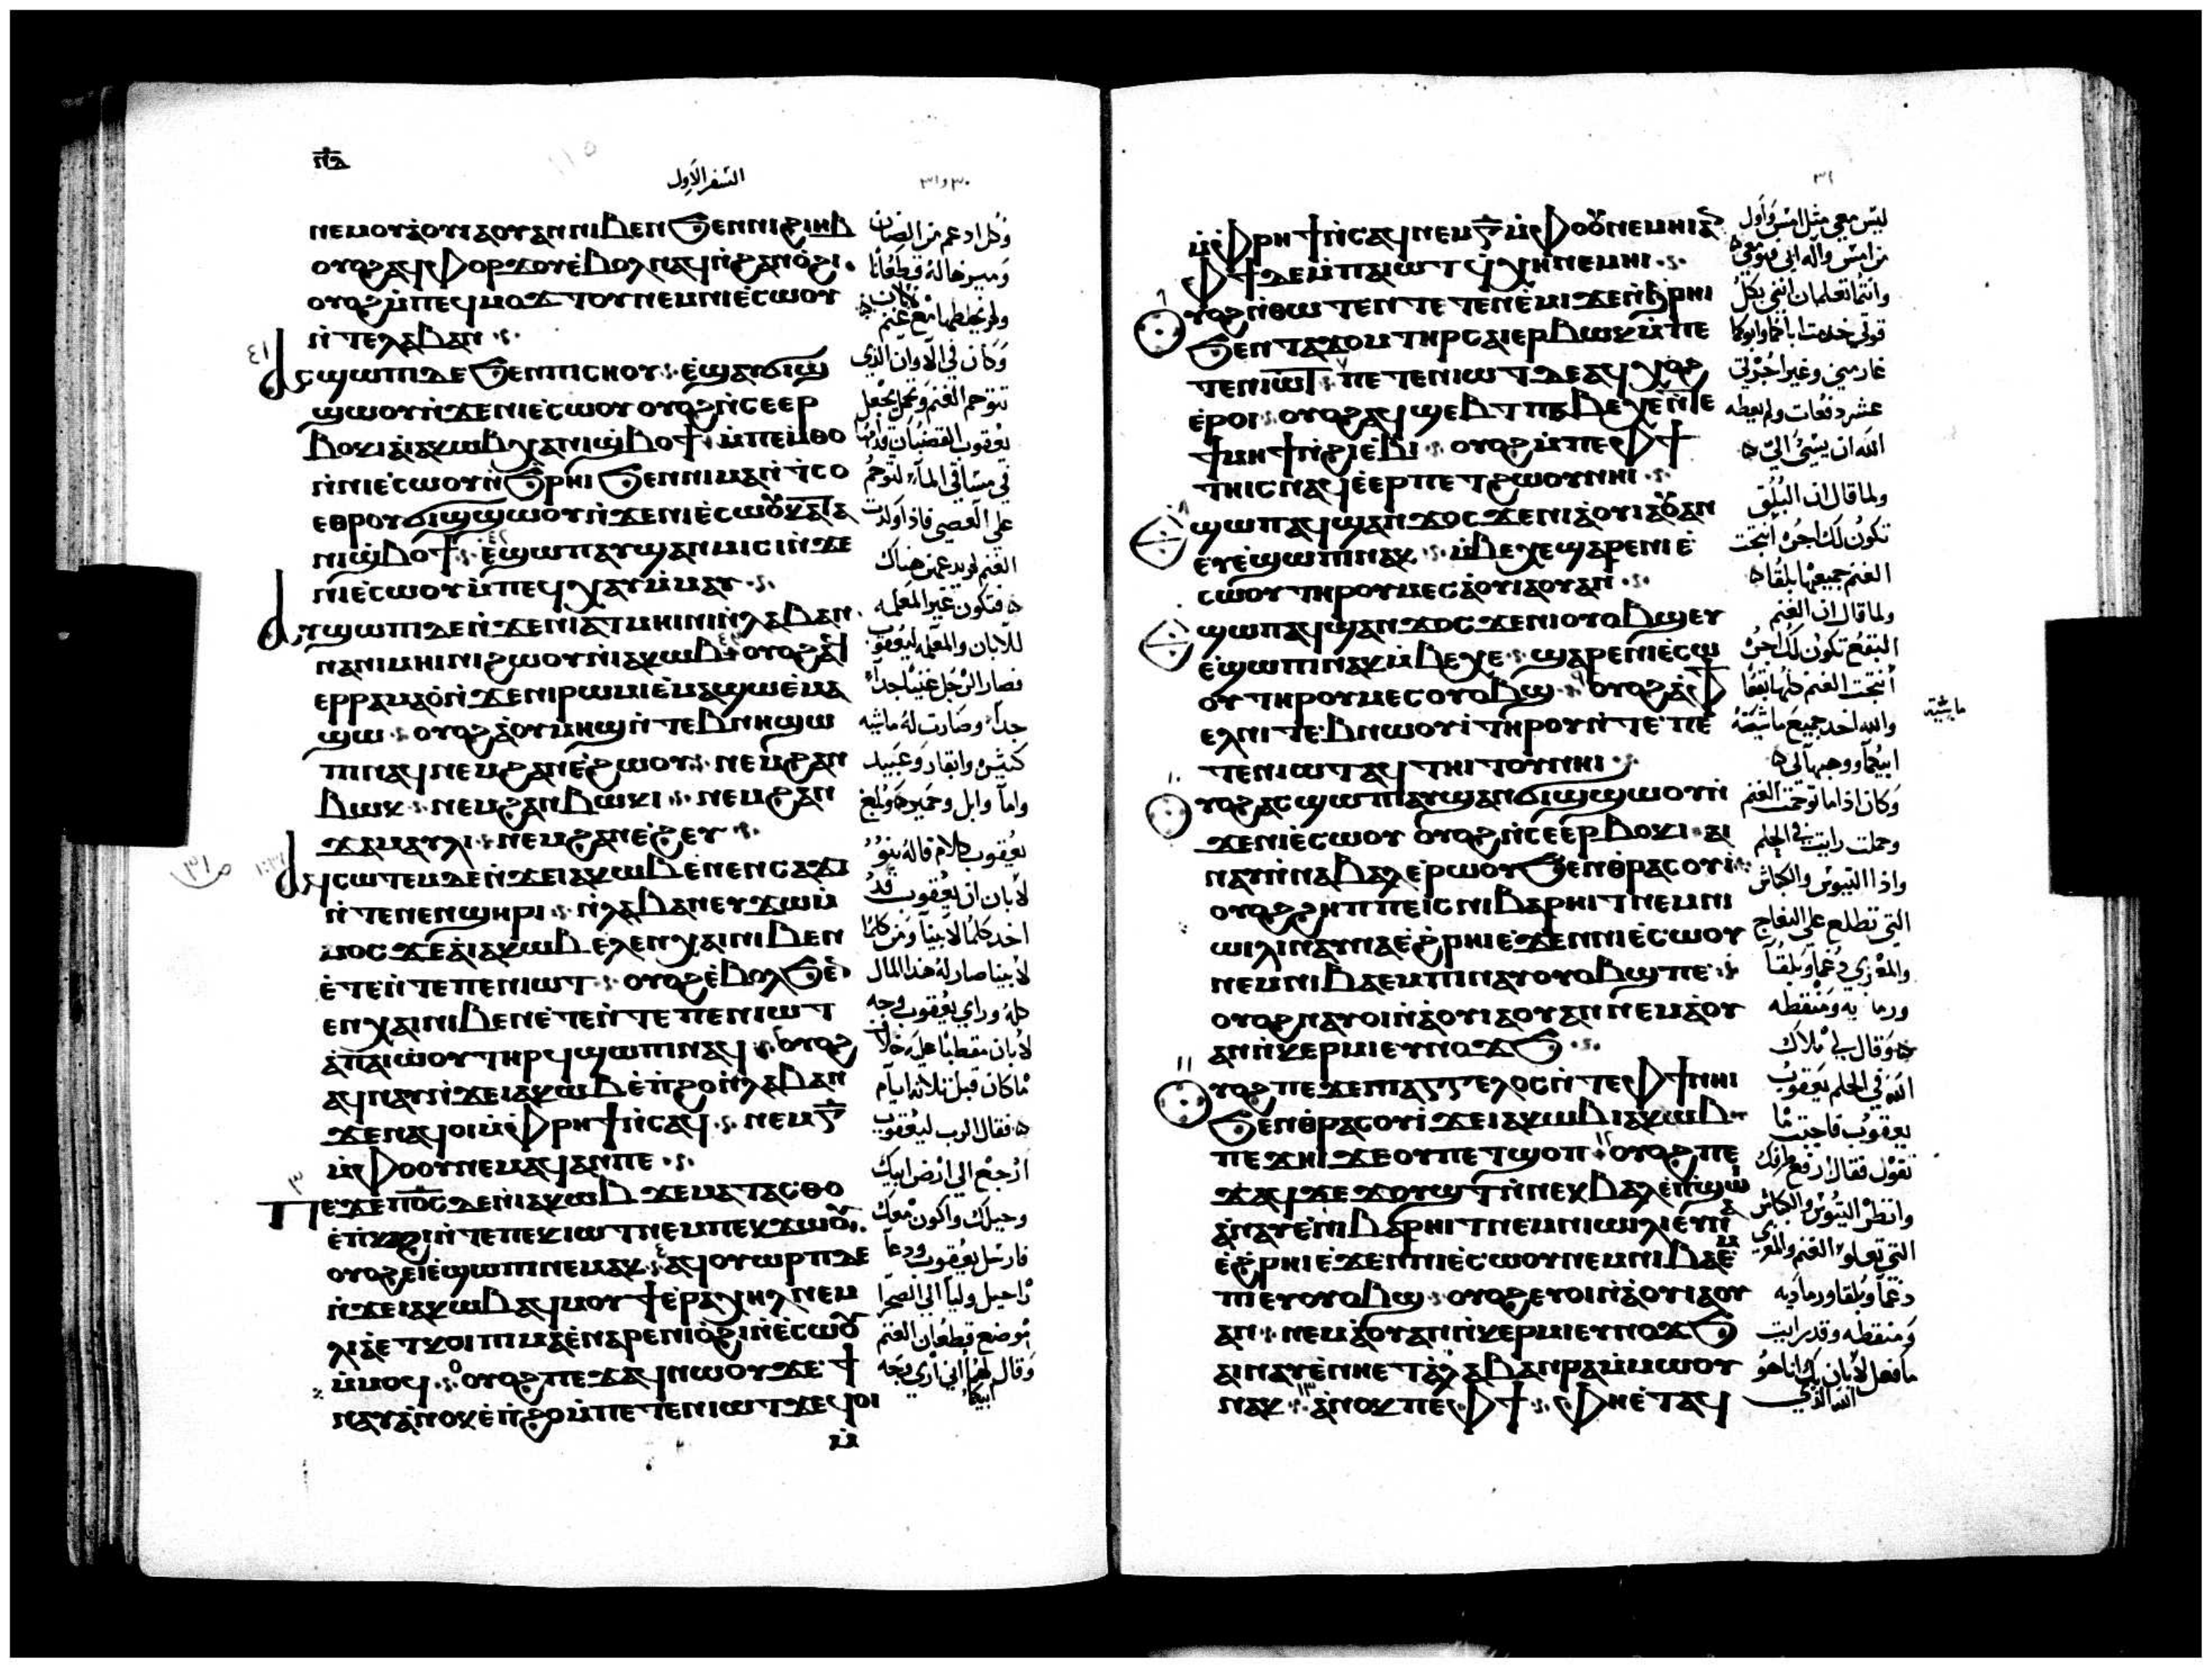 السفر الاول
ⲛⲉⲙⲟⲩⲁⲟⲩⲓⲁⲟⲩⲁⲛⲛⲓⲃⲉⲛϧⲉⲛⲛⲓϩⲓⲏⲃ
ⲟⲩⲟϩⲁϥⲫⲟⲣϫⲟⲩⲉⲃⲟⲗⲛⲁϥⲛϩⲁⲛⲟϩⲓ
ⲟⲩⲟϩⲙⲡⲉϥⲙⲟϫⲧⲟⲩⲛⲉⲙⲛⲓⲉⲥⲱⲟⲩ
ⲛⲧⲉⲗⲁⲃⲁⲛ
ⲁⲥϣⲱⲡⲓⲇⲉϧⲉⲛⲡⲓⲥⲏⲟⲩ ⲉϣⲁⲩϭⲓϣ
ϣⲱⲟⲩⲛϫⲉⲛⲓⲉⲥⲱⲟⲩⲟⲩⲟϩⲛⲥⲉⲉⲣ
ⲃⲟⲕⲓⲁⲓⲁⲕⲱⲃⲭⲁⲛⲓϣⲃⲟϯ ⲙⲡⲉⲙⲑⲟ
ⲛⲛⲓⲉⲥⲱⲟⲩⲛϧⲣⲏⲓϧⲉⲛⲛⲓⲙⲁⲛⲧⲥⲟ
ⲉⲑⲣⲟⲩϭⲓϣϣⲱⲟⲩⲛϫⲉⲛⲓⲉⲥⲱⲟⲩⲕⲁⲧⲁ
ⲛⲓϣⲃⲟϯ ⲉϣⲱⲡⲁⲩϣⲁⲛⲙⲓⲥⲓⲛϫⲉ
ⲛⲓⲉⲥⲱⲟⲩⲙⲡⲉϥⲭⲁⲩⲙⲙⲁⲩ
ⲁⲩϣⲱⲡⲓⲇⲉⲛϫⲉⲛⲓⲁⲧⲙⲏⲓⲛⲓⲛⲗⲁⲃⲁⲛ
ⲛⲁⲛⲓⲙⲏⲓⲛⲓϩⲱⲟⲩⲛⲓⲁⲕⲱⲃ ⲟⲩⲟϩⲁϥ
ⲉⲣⲣⲁⲙⲁⲟⲛϫⲉⲛⲓⲣⲱⲙⲓⲉⲙⲁϣⲱⲉⲙⲁ
ϣⲱ ⲟⲩⲟϩⲁⲟⲩⲙⲏϣⲛⲧⲉⲃⲛⲏϣⲱ
ⲡⲓⲛⲁϥⲛⲉⲙϩⲁⲛⲉϩⲱⲟⲩ ⲛⲉⲙϩⲁⲛ
ⲃⲱⲕ ⲛⲉⲙϩⲁⲛⲃⲱⲕⲓ ⲛⲉⲙϩⲁⲛ
ϫⲁⲙⲁⲩⲗⲓ ⲛⲉⲙϩⲁⲛⲉϩⲉⲩ
ⲁϥⲥⲱⲧⲉⲙⲇⲉⲛϫⲉⲓⲁⲕⲱⲃⲉⲛⲉⲛⲥⲁϫⲓ
ⲛⲧⲉⲛⲉⲛϣⲏⲣⲓ ⲛⲗⲁⲃⲁⲛⲉⲩϫⲱⲙ
ⲙⲟⲥϫⲉⲁⲓⲁⲕⲱⲃⲉⲗⲉⲛⲭⲁⲓⲛⲓⲃⲉⲛ
ⲉⲧⲉⲛⲧⲉⲡⲉⲛⲓⲱⲧ ⲟⲩⲟϩⲉⲃⲟⲗϧⲉ
ⲉⲛⲭⲁⲓⲛⲓⲃⲉⲛⲉⲧⲉⲛⲧⲉⲡⲉⲛⲓⲱⲧ
ⲁⲡⲁⲓⲱⲟⲩⲧⲏⲣϥϣⲱⲡⲓⲛⲁϥ ⲟⲩⲟϩ
ⲁϥⲛⲁⲩⲛϫⲉⲓⲁⲕⲱⲃⲉⲡϩⲟⲛⲗⲁⲃⲁⲛ
ϫⲉⲛⲁϥⲟⲓⲙⲫⲣⲏϯⲛⲥⲁϥ ⲛⲉⲙⲅ
ⲙⲫⲟⲟⲩⲛⲉⲙⲁϥⲁⲛⲡⲉ
ⲡⲉϫⲉⲡⲟⲥⲇⲉⲛⲓⲁⲕⲱⲃϫⲉⲙⲁⲧⲁⲥⲑⲟ
ⲉⲡⲕⲁϩⲓⲛⲧⲉⲡⲉⲕⲓⲱⲧⲛⲉⲙⲡⲉⲕϫⲱⲟⲩ
ⲟⲩⲟϩⲉⲓⲉϣⲱⲡⲓⲛⲉⲙⲁⲕ ⲁϥⲟⲩⲱⲣⲡⲇⲉ
ⲛϫⲉⲓⲁⲕⲱⲃⲁϥⲙⲟⲩϯⲉⲣⲁⲭⲏⲗⲛⲉⲙ
ⲗⲓⲁⲉⲧⲕⲟⲓⲡⲓⲙⲁⲉⲛⲁⲣⲉⲛⲓⲟϩⲓⲛⲉⲥⲱⲟⲩ
ⲙⲙⲟϥ ⲟⲩⲟϩⲡⲉϫⲁϥⲛⲱⲟⲩϫⲉϯ
ⲛⲁⲩⲁⲛⲟⲕⲉⲡϩⲟⲙⲡⲉⲧⲉⲛⲓⲱⲧϫⲉϥⲟⲓ
ⲙ
وكل ادغم من الضان
وميزها له قطعانا
ولم يخلطها مع غنم
لابان
وكان في الاوان الذي
تتوحم الغنم وتحبل يجعل
يعقوب القضبان قدامها
في مساقي الماء لتوحم
على العصي فاذا ولدت
الغنم لم يدعهن هناك
فتكون غير المعلمه
للابان والمعلمه ليعقوب
فصار الرجل غنيا جدا
جدا وصارت له ماشيه
كثيره وابقار وعبيد
واما وابل وحمير وبلغ
يعقوب كلام قاله بنو
لابان ان يعقوب قد
اخذ كلما لابينا ومن كلما
لابينا صار له هذا المال
كله وراي يعقوب وجه
لابان مقطبا عليه خلاف
ما كان قبل ثلاثه ايام
فقال الرب ليعقوب
ارجع الي ارض ابيك
وجيلك واكون معك
فارسل يعقوب ودعا
راحيل وليا الي الصحرا
موضع قطعان الغنم
وقال لهما اني اري وجه
ابيكما
ⲙⲫⲣⲏϯⲛⲥⲁϥⲛⲉⲙⲅⲙⲫⲟⲟⲩⲛⲉⲙⲏⲓⲁⲛ
ⲫϯⲇⲉⲙⲡⲁⲓⲱⲧϥⲭⲏⲛⲉⲙⲏⲓ
ⲟⲩⲟϩⲛⲑⲱⲧⲉⲛⲧⲉⲧⲉⲛⲉⲙⲓϫⲉⲛϧⲣⲏⲓ
ϧⲉⲛⲧⲁϫⲟⲙⲧⲏⲣⲥⲁⲓⲉⲣⲃⲱⲕⲙⲡⲉ
ⲧⲉⲛⲓⲱⲧ ⲡⲉⲧⲉⲛⲓⲱⲧⲇⲉⲁϥⲭⲟϩ
ⲉⲣⲟⲓ ⲟⲩⲟϩⲁϥϣⲉⲃⲧⲡⲃⲉⲭⲉⲛⲧⲉ
ϯⲙⲏϯⲛϩⲓⲉⲃⲓ ⲟⲩⲟϩⲙⲡⲉⲫϯ
ⲧⲏⲓⲥⲛⲁϥⲉⲉⲣⲡⲉⲧϩⲱⲟⲩⲛⲏⲓ
ϣⲱⲡⲁϥϣⲁⲛϫⲟⲥϫⲉⲛⲓⲁⲟⲩⲓⲁⲟⲩⲁⲛ
ⲉⲩⲉϣⲱⲡⲓⲛⲁⲕ ⲙⲃⲉⲭⲉϣⲁⲣⲉⲛⲓⲉ
ⲥⲱⲟⲩⲧⲏⲣⲟⲩⲙⲉⲥⲁⲟⲩⲓⲁⲟⲩⲁⲛ
ϣⲱⲡⲁϥϣⲁⲛϫⲟⲥϫⲉⲛⲓⲟⲩⲟⲃϣⲉⲩ
ⲉϣⲱⲡⲓⲛⲁⲕⲙⲃⲉⲭⲉ ϣⲁⲣⲉⲛⲓⲉⲥⲱ
ⲟⲩⲧⲏⲣⲟⲩⲙⲉⲥⲟⲩⲟⲃϣ ⲟⲩⲟϩⲁⲫϯ
ⲉⲗⲛⲓⲧⲉⲃⲛⲱⲟⲩⲓⲧⲏⲣⲟⲩⲛⲧⲉⲡⲉ
ⲧⲉⲛⲓⲱⲧⲁϥⲧⲏⲓⲧⲟⲩⲛⲏⲓ
ⲟⲩⲟϩⲁⲥϣⲱⲡⲓⲁⲩϣⲁⲛϭⲓϣϣⲱⲟⲩⲛ
ϫⲉⲛⲓⲉⲥⲱⲟⲩ ⲟⲩⲟϩⲛⲥⲉⲉⲣⲃⲟⲕⲓ ⲁⲓ
ⲛⲁⲩⲛⲛⲁⲃⲁⲗⲉⲣⲱⲟⲩϧⲉⲛⲑⲣⲁⲥⲟⲩⲓ
ⲟⲩⲟϩϩⲏⲡⲡⲉⲓⲥⲛⲓⲃⲁⲣⲏⲓⲧⲛⲉⲙⲛⲓ
ⲱⲓⲗⲓⲛⲁⲩⲛⲁⲉϩⲣⲏⲓⲉϫⲉⲛⲛⲓⲉⲥⲱⲟⲩ
ⲛⲉⲙⲛⲓⲃⲁⲉⲙⲡⲓⲛⲁⲩⲟⲩⲟⲃϣⲡⲉ
ⲟⲩⲟϩⲛⲁⲩⲟⲓⲛⲁⲟⲩⲓⲁⲟⲩⲁⲛⲛⲉⲙⲁⲟⲩ
ⲁⲛⲛⲕⲉⲣⲙⲓⲉⲩⲛⲟϫϧ
ⲟⲩⲟϩⲡⲉϫⲉⲡⲓⲁⲅⲅⲉⲗⲟⲥⲛⲧⲉⲫϯⲛⲏⲓ
ϧⲉⲛⲑⲣⲁⲥⲟⲩⲓϫⲉⲓⲁⲕⲱⲃⲓⲁⲕⲱⲃ
ⲡⲉϫⲏⲓϫⲉⲟⲩⲡⲉⲧϣⲟⲡ ⲟⲩⲟϩⲡⲉ
ϫⲁϥϫⲉϫⲟⲩϣⲧⲛⲛⲉⲕⲃⲁⲗⲉⲡϣⲱ
ⲁⲛⲁⲩⲉⲛⲓⲃⲁⲣⲏⲓⲧⲛⲉⲙⲛⲓⲱⲓⲗⲓⲉⲩⲛ
ⲉϩⲣⲏⲓⲉϫⲉⲛⲛⲓⲉⲥⲱⲟⲩⲛⲉⲙⲛⲓⲃⲁⲉ
ⲡⲓⲉⲩⲟⲩⲟⲃϣ ⲟⲩⲟϩⲉⲩⲟⲓⲛⲁⲟⲩⲓⲁⲟⲩ
ⲁⲛ ⲛⲉⲙⲁⲟⲩⲁⲛⲛⲕⲉⲣⲙⲓⲉⲩⲛⲟϫϧ
ⲁⲓⲛⲁⲩⲉⲛⲏⲉⲧⲁⲗⲁⲃⲁⲛⲣⲁⲙⲙⲱⲟⲩ
ⲛⲁⲕ ⲁⲛⲟⲕⲡⲉⲫϯ ⲫⲏⲉⲧⲁϥ
ليس معي مثل امس واول
من امس واله ابي هو معي
وانتما تعلمان انني بكل
قوتي خدمت اباكما وابوكما
غار مني وغير اجرتي
عشر دفعات ولم يعطه
الله ان يسيئ الي
ولما قال ان البلق
تكون لك اجره انتجت
الغنم جميعها بلقا
ولما قال ان الغنم
البقع تكون لك اجره
انتجت الغنم كلها بقعا
والله اخد جميع ماشية
ماشية
ابيكما ووهبها لي
وكان اذا ما توحمت الغنم
وحملت رايت في الحلم
واذا التيوس والكباش
التي تطلع على النعاج
والمعزي دغما وبلقا
ورمادية ومنقطه
وقال لي ملاك
الله في الحلم يعقوب
يعقوب فاجبت ما
تقول فقال ارفع طرفك
وانظر التيوس والكباش
التي تعلو الغنم والمعزي
دغما وبلقا ورماديه
ومنقطه وقد رايت
ما فعل لابان بك انا هو
الله الذي